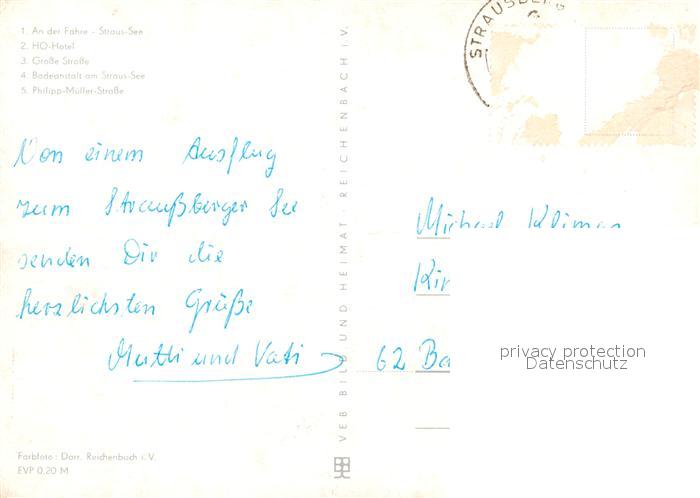 1. An der Fähre - Straus-See
2. HO-Hotel
3. Große Straße
4. Badeanstalt am Straus-See
5. Philipp-Müller-Straße
Von einem Ausflug
zum Straußberger See
senden Dir die
herzlichsten Grüße
Mutti und Vati
Farbfoto: Darr, Reichenbach i. V.
EVP 0,20 M
VEB BILD UND HEIMAT · REICHENBACH I. V.
STRAUSBERG
Michael
62
privacy protection
Datenschutz